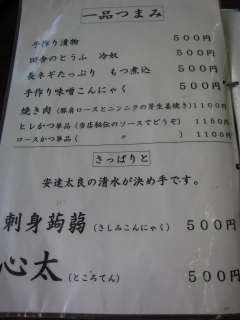 一品つまみ
手作り漬物 500円
田舎のとうふ 冷奴 500円
長ネギたっぷり もつ煮込 500円
手作り味噌こんにゃく 500円
焼き肉(豚肩ロースとニンニクの芽生姜焼き)1100円
ヒレかつ単品(当店秘伝のソースでどうぞ) 1150円
ロースかつ単品( 〃 ) 1100円
さっぱりと
安達太良の清水が決め手です。
刺身蒟蒻(さしみこんにゃく) 500円
心太(ところてん) 500円